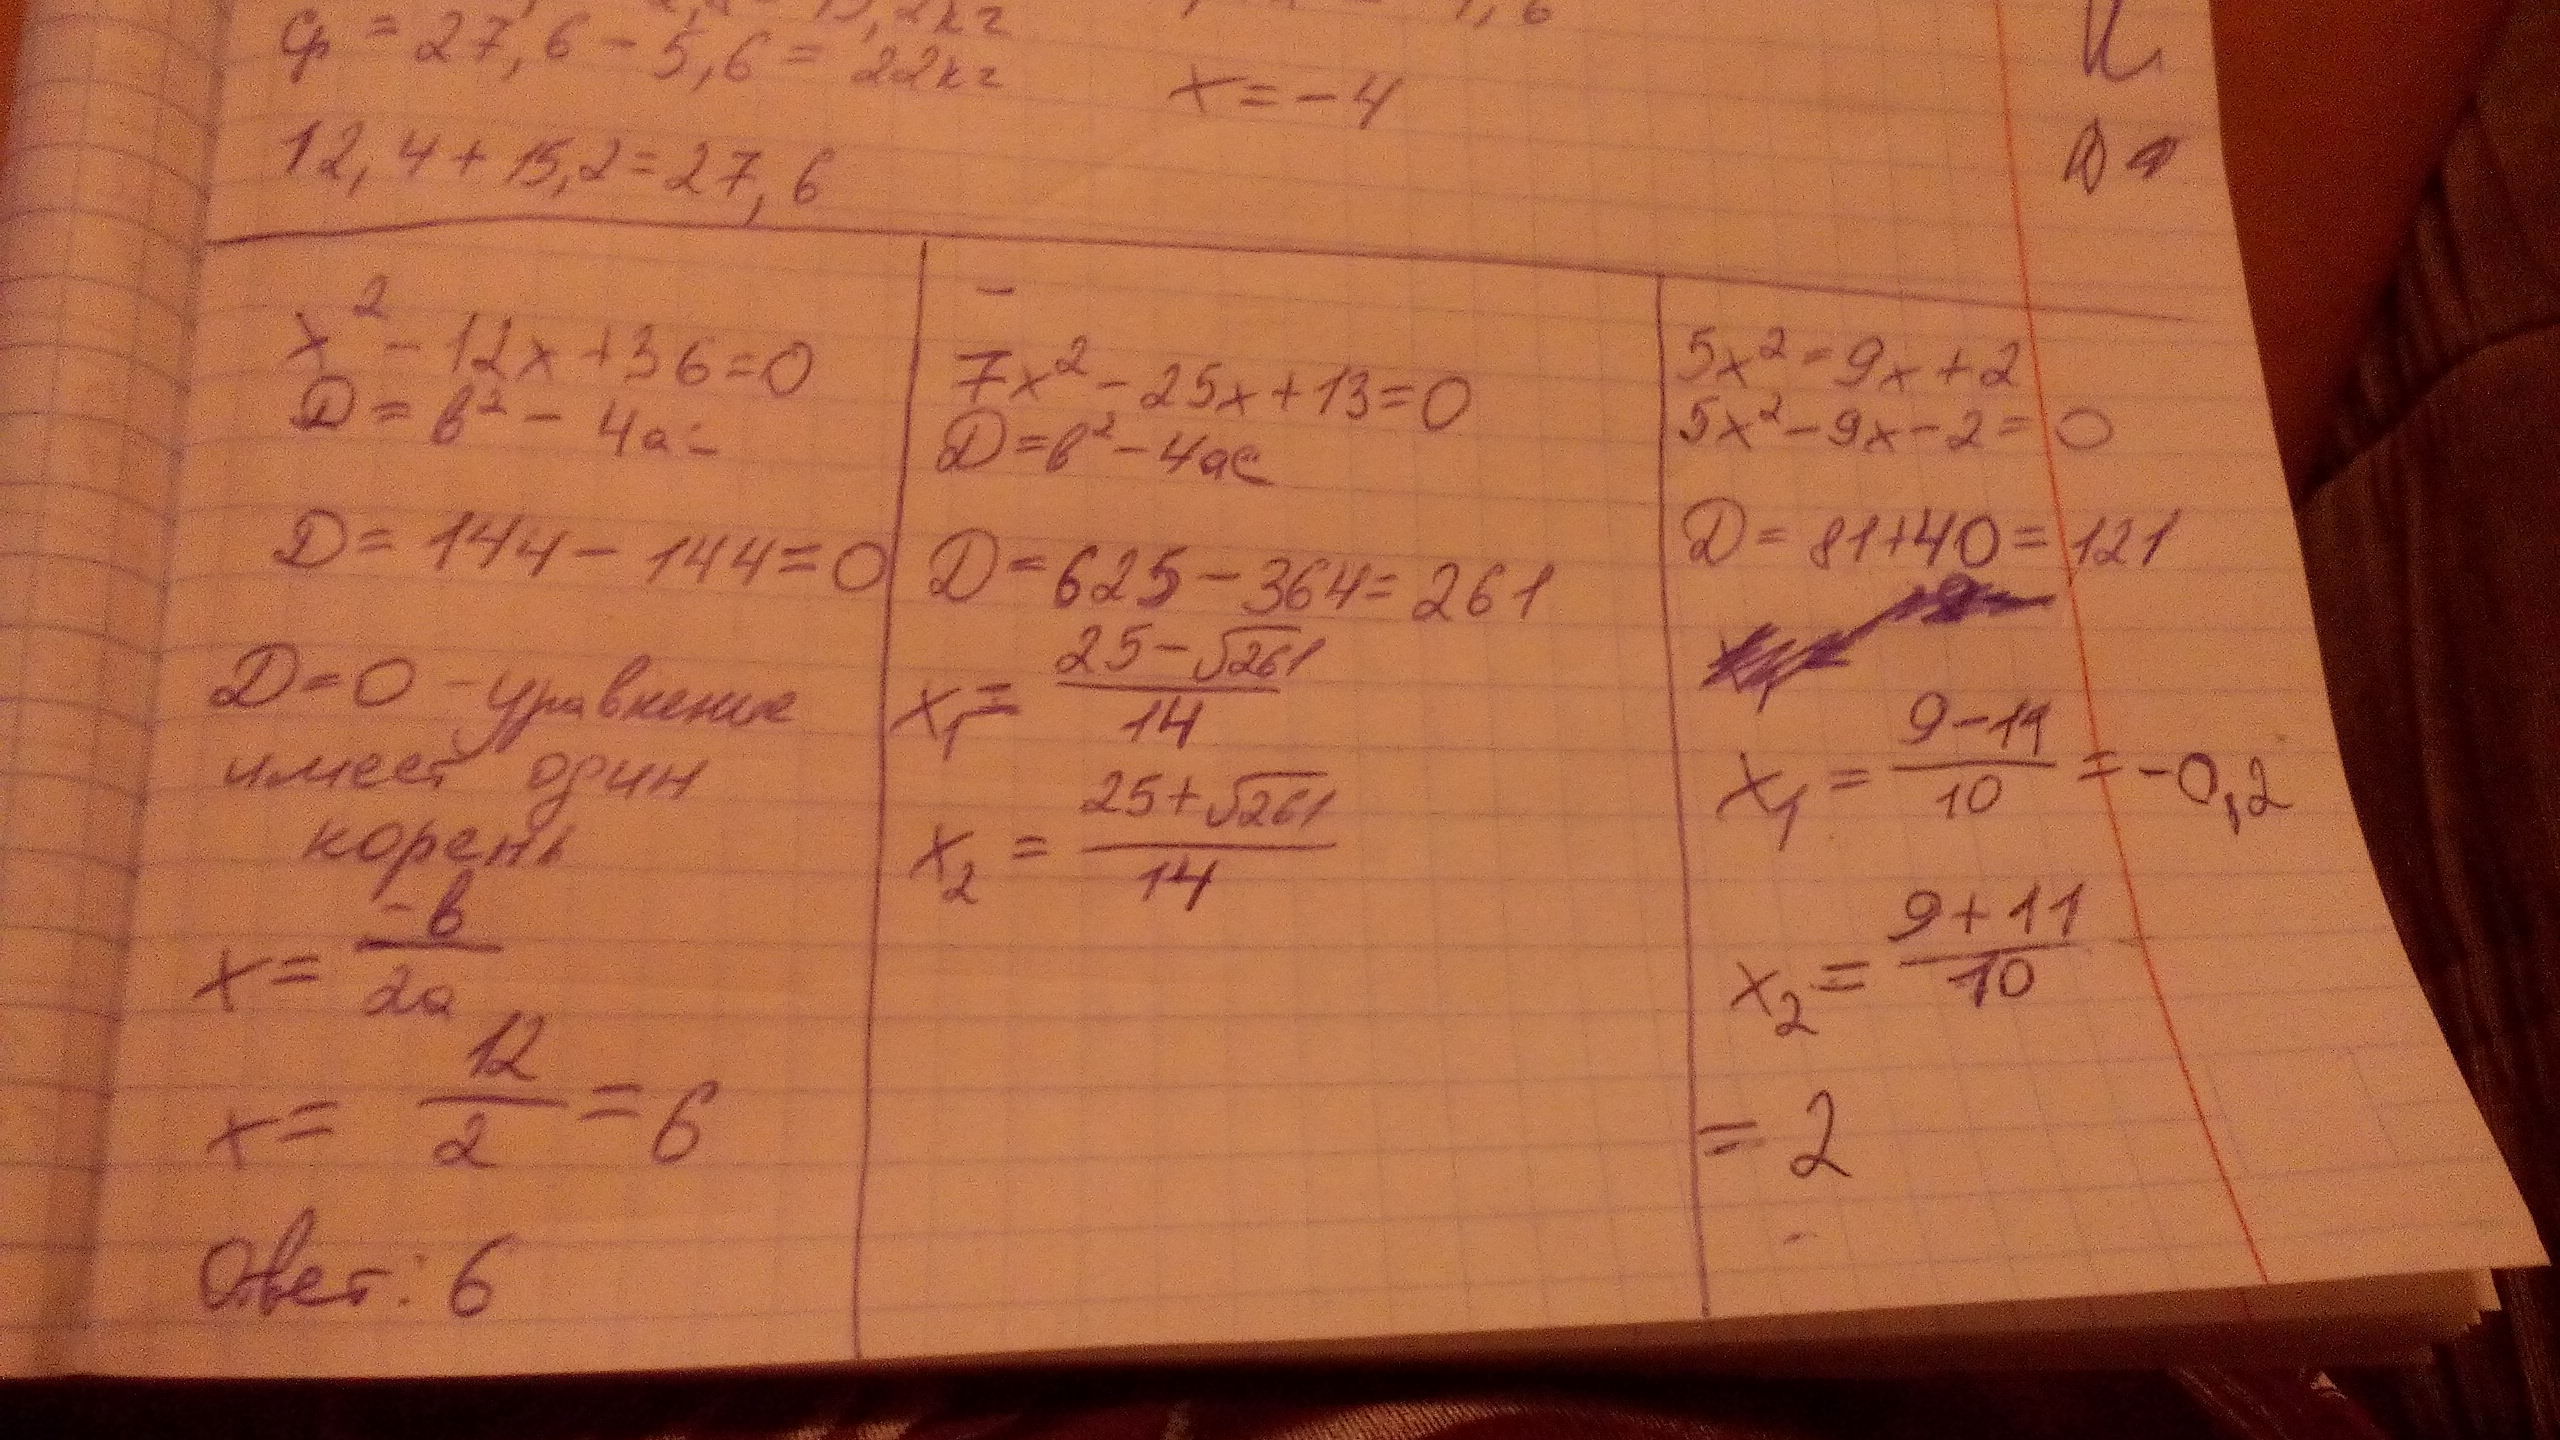 = 27,6 - 5,6 = 22кг
x = -4
12,4 + 15,2 = 27,6
x² - 12x + 36 = 0
D = в² - 4ac
D = 144 - 144 = 0
D = 0 - уравнение
имеет один
корень
x = -в/2a
x = 12/2 = 6
Ответ: 6
7x² - 25x + 13 = 0
D = в² - 4ac
D = 625 - 364 = 261
x₁ = 25 - √261/14
x₂ = 25 + √261/14
5x² = 9x + 2
5x² - 9x - 2 = 0
D = 81 + 40 = 121
x₁ = 9 - 11/10 = -0,2
x₂ = 9 + 11/10
= 2